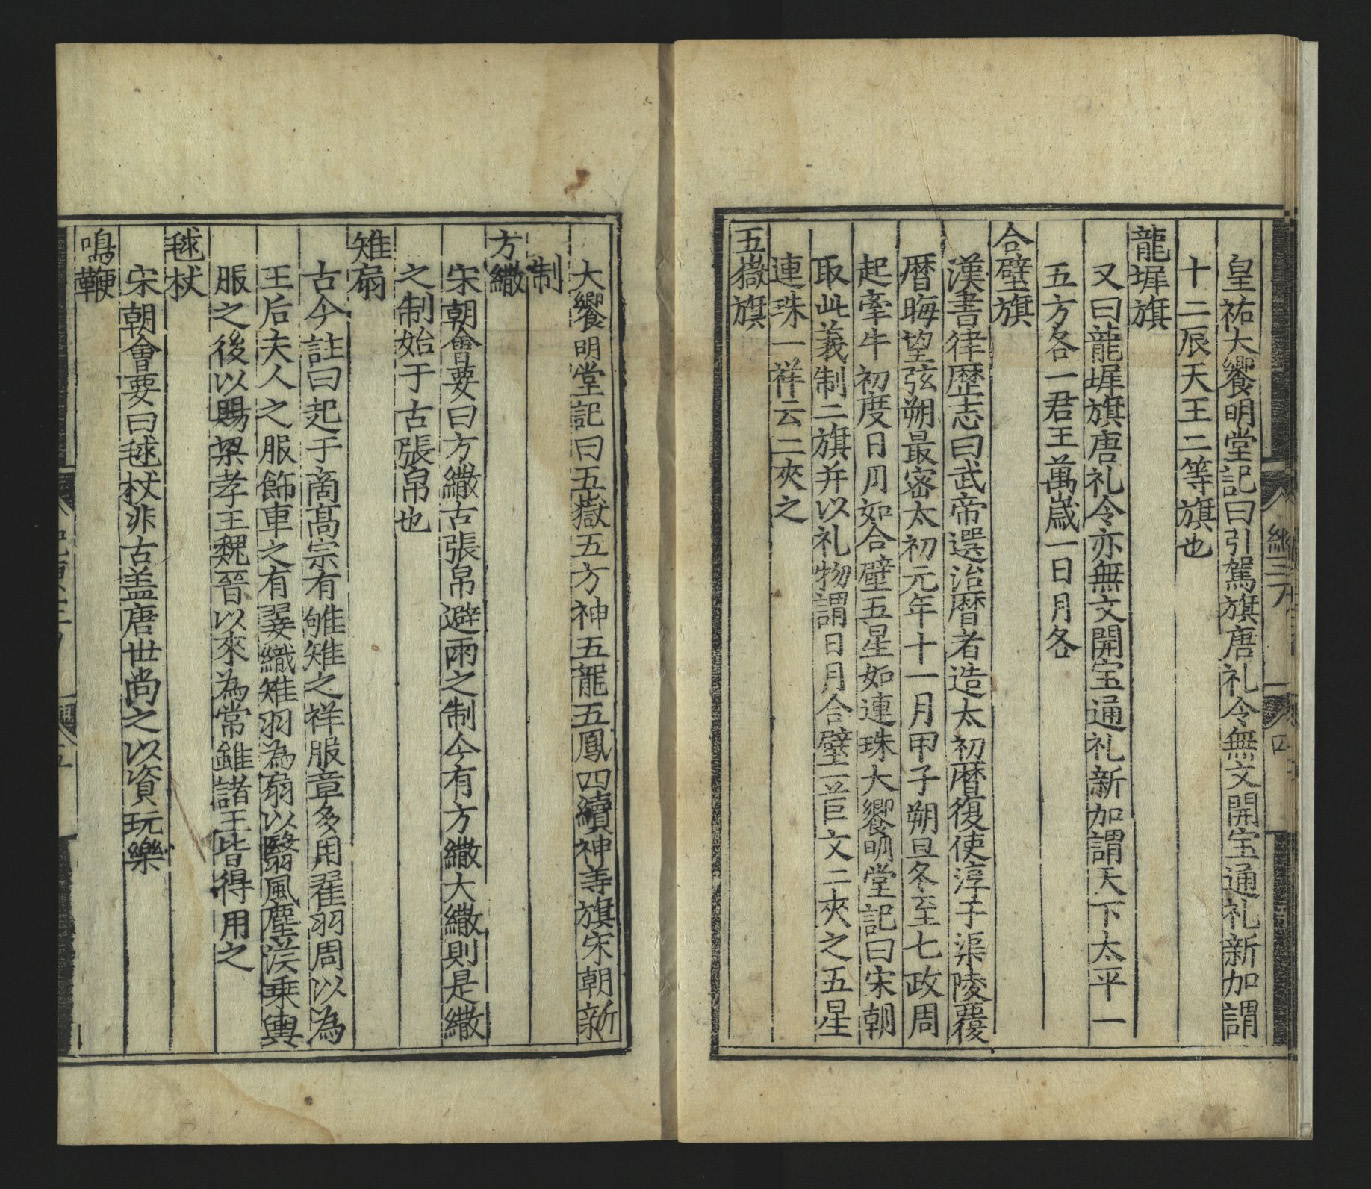 皇祐大饗明堂記曰引駕旗唐礼令無文開宝通礼新加謂
十二辰天王二等旗也
龍墀旗
又曰龍墀旗唐礼令亦無文開宝通礼新加謂天下太平一
五方各一君王萬歲一日月各一
合璧旗
漢書律歷志曰武帝選治曆者造太初曆復使淳于渠陵覆
曆晦望弦朔最密太初元年十一月甲子朔旦冬至七政周
起牽牛初度日月如合璧五星如連珠大饗明堂記曰宋朝
取此義制二旗并以礼物謂日月合璧一苣文二夾之五星
連珠一祥云二夾之
五嶽旗
大饗明堂記曰五嶽五方神五龍五鳳四瀆神等旗宋朝新
制
方繖
宋朝會要曰方繖古張帛避雨之制今有方繖大繖則是繖
之制始于古張帛也
雉扇
古今註曰起于啇髙宗有雊雉之祥服章多用翟羽周以為
王后夫人之服飾車之有翣織雉羽為扇以翳風塵漢乗輿
服之後以賜梁孝王魏晉以來為常雖諸王皆得用之
毬杖
宋朝會要曰毬杖非古盖唐世尚之以資玩樂
鳴鞭